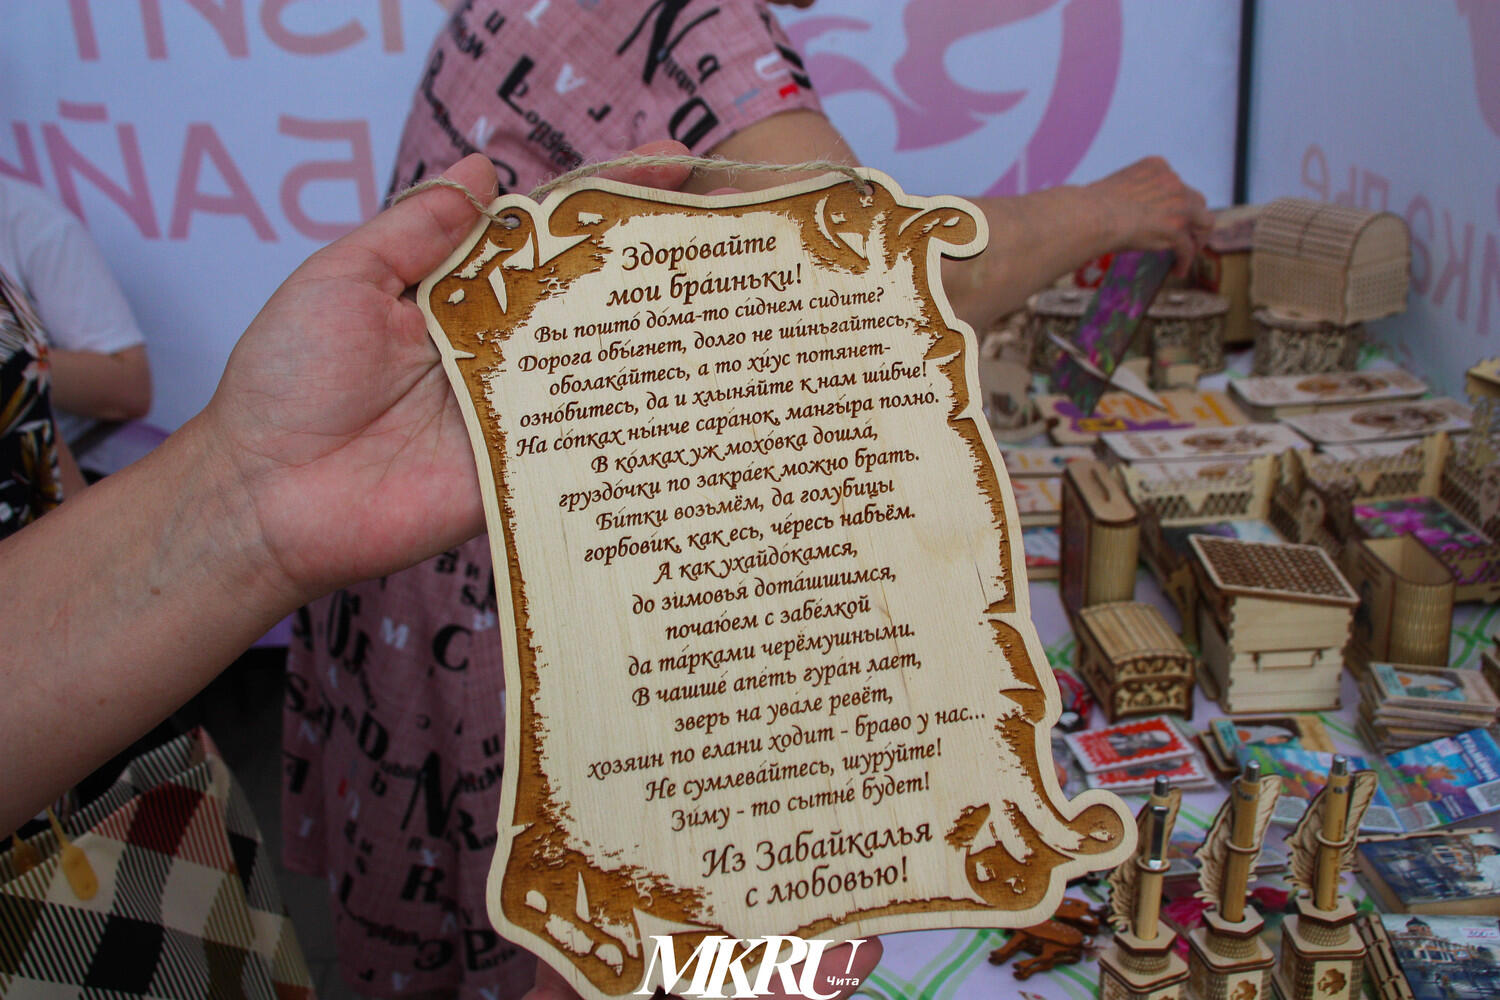 Здоро́вайте
мои бра́иньки!
Вы пошто́ до́ма-то си́днем сидите?
Дорога обы́гнет, долго не ши́ньгайтесь,
оболака́йтесь, а то хи́ус потянет-
озно́битесь, да и хлыня́йте к нам ши́бче!
На со́пках ны́нче сара́нок, мангы́ра полно́.
В ко́лках уж мохо́вка дошла́,
груздо́чки по закра́ек можно брать.
Би́тки возьмём, да голубицы
горбови́к, как есь, че́ресь набъём.
А как ухайдо́камся,
до зимовья́ дота́шшимся,
почаю́ем с забе́лкой
да та́рками черёмушными.
В чашше́ апе́ть гура́н лает,
зверь на ува́ле ревёт,
хозяин по елани ходит - браво у нас...
Не сумлева́йтесь, шуру́йте!
Зи́му - то сытне́ будет!
Из Забайкалья
с любовью!
MKRU
Чита